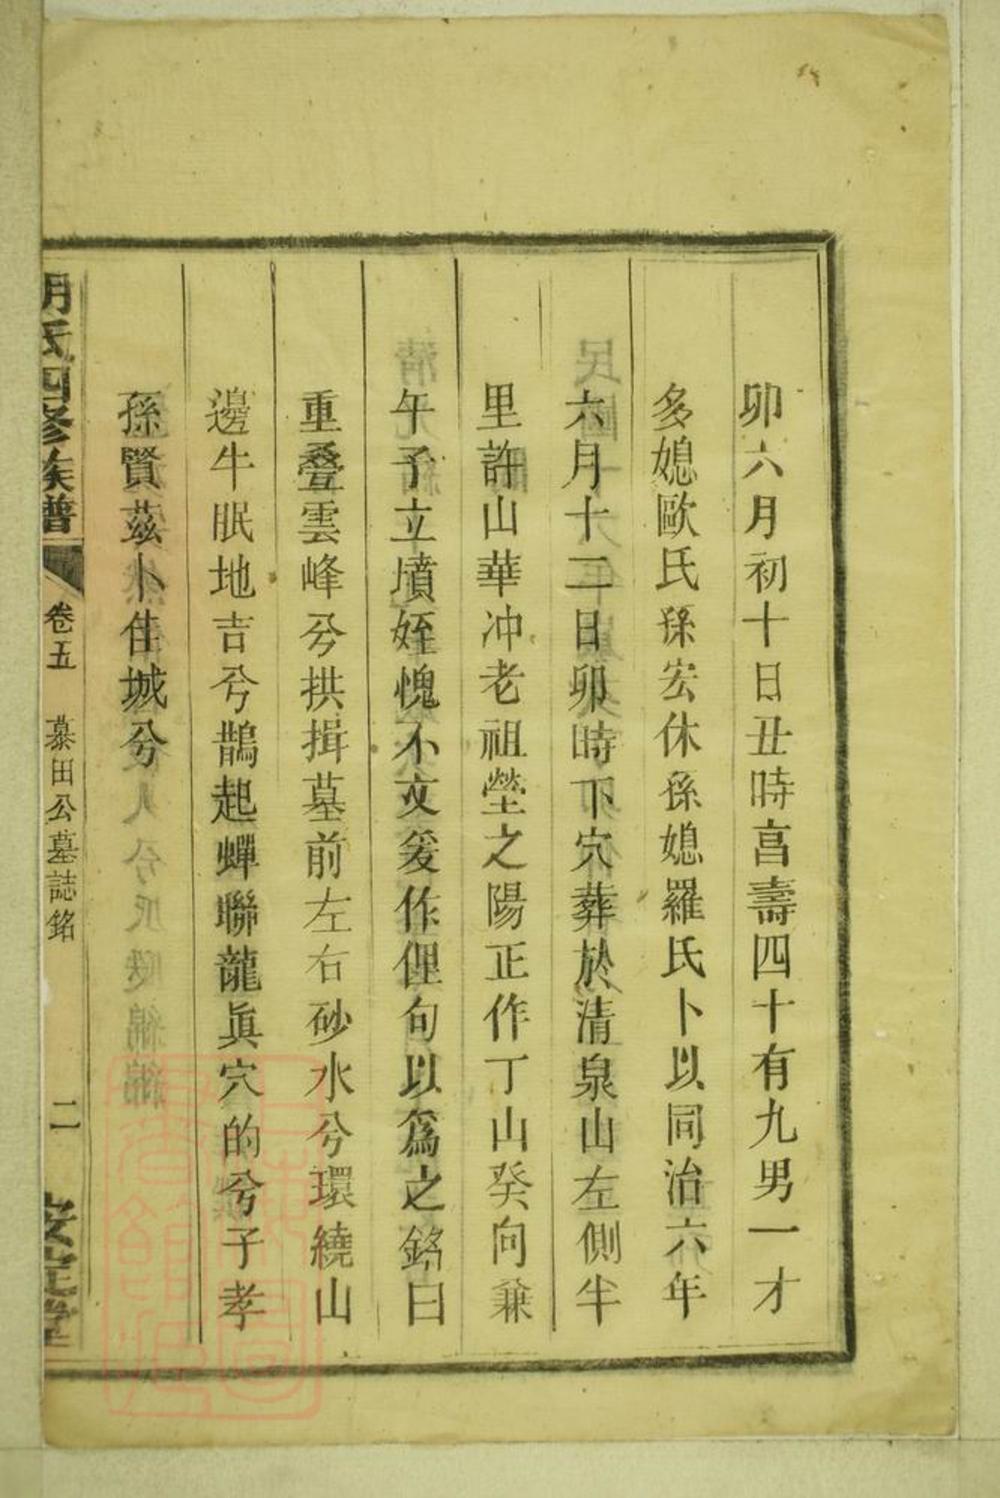 卯六月初十日丑時享壽四十有九男一才
多媳歐氏孫宏休孫媳羅氏卜以同治六年
六月十二日卯時下穴葬於清泉山左側半
里許山華冲老祖塋之陽正作丁山癸向兼
午子立墳姪愧不文爰作俚句以爲之銘曰
重叠雲峰兮拱揖墓前左右砂水兮環繞山
邊牛眠地吉兮鵲起蟬聯龍眞穴的兮子孝
孫賢茲卜佳城兮
胡氏四修族譜
卷五
慕田公墓誌銘
二
安定堂